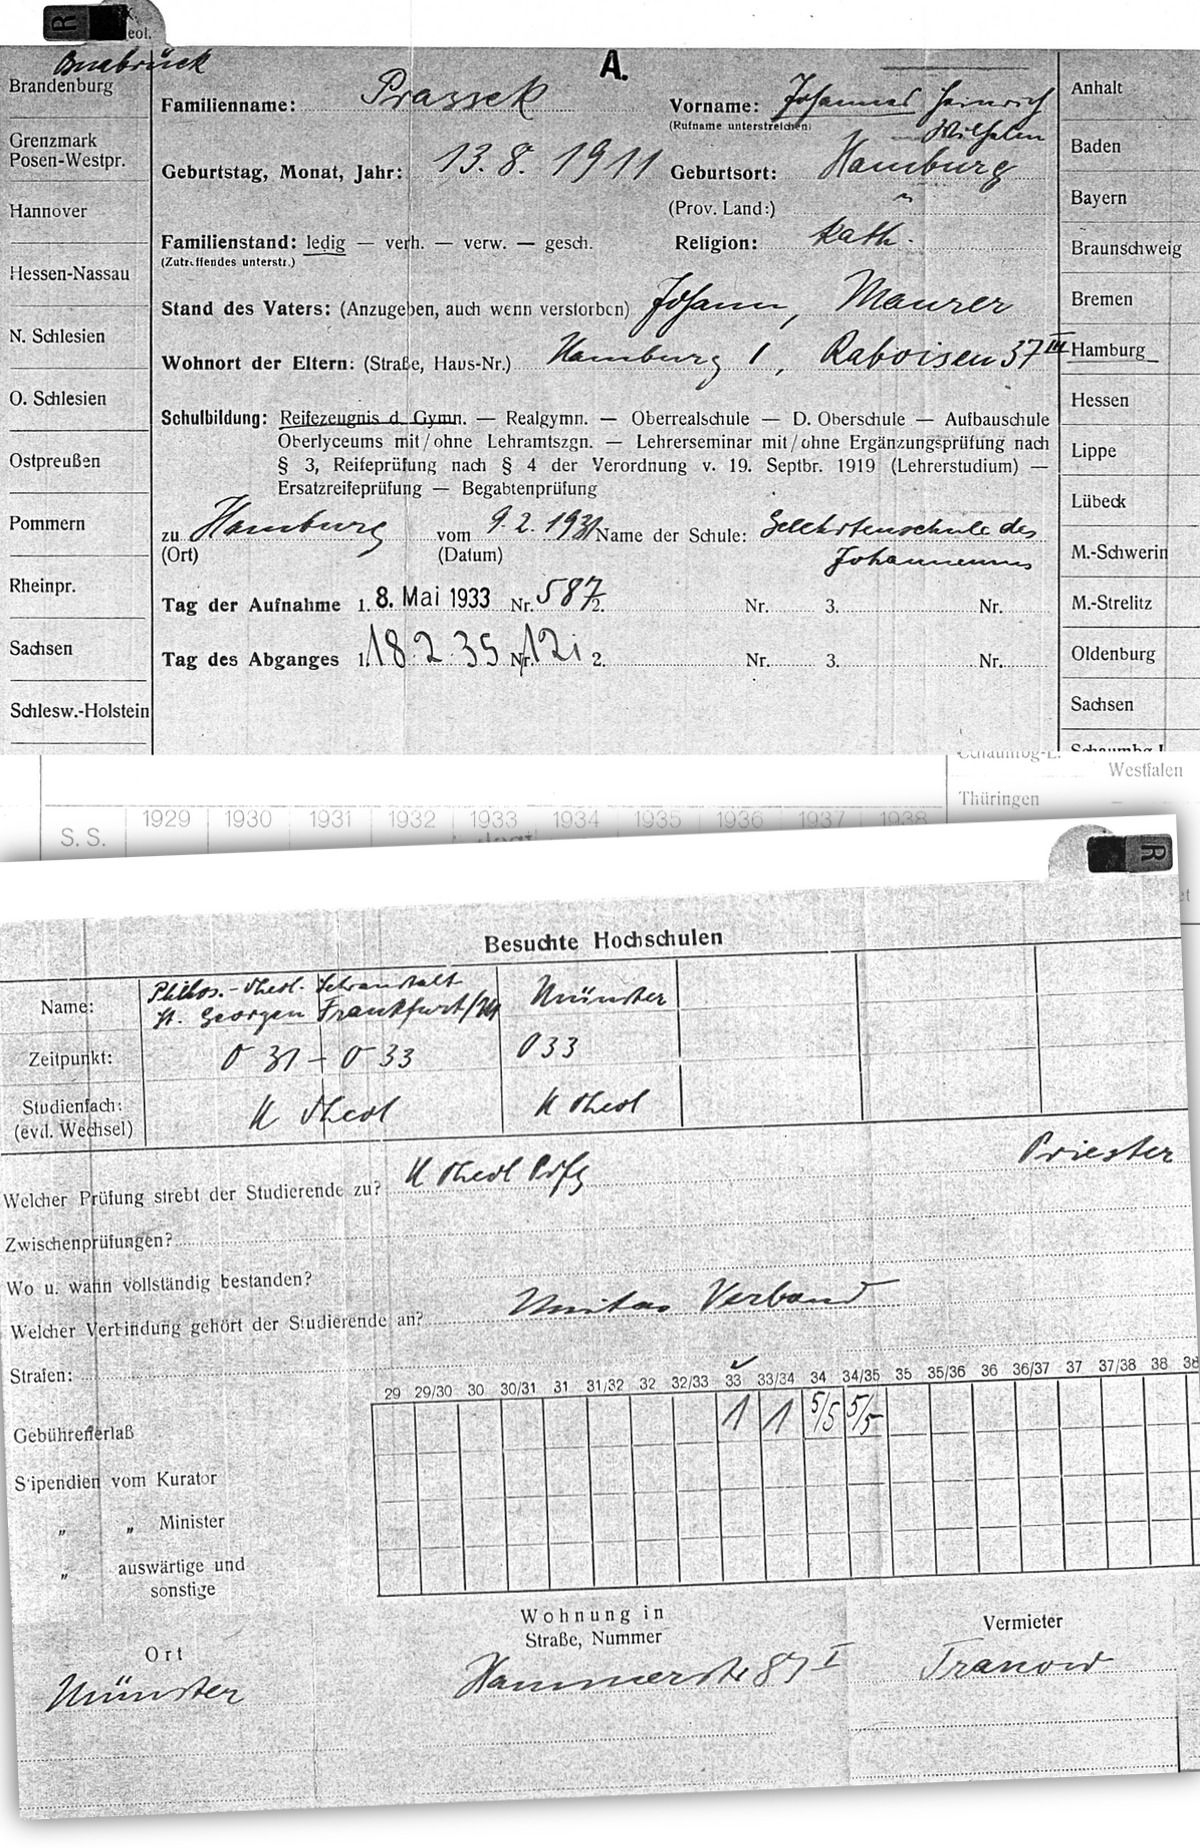 R
eol.
Osnabrück
A.
Brandenburg
Grenzmark
Posen-Westpr.
Hannover
Hessen-Nassau
N. Schlesien
O. Schlesien
Ostpreußen
Pommern
Rheinpr.
Sachsen
Schlesw.-Holstein
Familienname: Prassek Vorname: Johannes Heinrich
(Rufname unterstreichen) Wilhelm
Geburtstag, Monat, Jahr: 13. 8. 1911 Geburtsort: Hamburg
(Prov. Land:) "
Familienstand: ledig — verh. — verw. — gesch. Religion: kath.
(Zutreffendes unterstr.)
Stand des Vaters: (Anzugeben, auch wenn verstorben) Johann, Maurer
Wohnort der Eltern: (Straße, Haus-Nr.) Hamburg 1, Raboisen 37 III
Schulbildung: Reifezeugnis d. Gymn. — Realgymn. — Oberrealschule — D. Oberschule — Aufbauschule
Oberlyceums mit/ohne Lehramtszgn. — Lehrerseminar mit/ohne Ergänzungsprüfung nach
§ 3, Reifeprüfung nach § 4 der Verordnung v. 19. Septbr. 1919 (Lehrerstudium) —
Ersatzreifeprüfung — Begabtenprüfung
zu Hamburg vom 9. 2. 1931 Name der Schule: Gelehrtenschule des
(Ort) (Datum) Johanneums
Tag der Aufnahme 1. 8. Mai 1933 Nr. 587 2. Nr. 3. Nr.
Tag des Abganges 1. 18. 2 35 Nr. 121 2. Nr. 3. Nr.
Anhalt
Baden
Bayern
Braunschweig
Bremen
Hamburg
Hessen
Lippe
Lübeck
M.-Schwerin
M.-Strelitz
Oldenburg
Sachsen
Schaumbg-L.
Schaumbg-L.
Westfalen
Thüringen
S. S. 1929 1930 1931 1932 1933 1934 1935 1936 1937 1938
R
Besuchte Hochschulen
Name: Philos.-theol. Lehranstalt
St. Georgen Frankfurt/M Münster
Zeitpunkt: O 31 – O 33 O 33
Studienfach: K Theol K Theol
(evtl. Wechsel)
Welcher Prüfung strebt der Studierende zu? K Theol Prfg Priester
Zwischenprüfungen?
Wo u. wann vollständig bestanden?
Welcher Verbindung gehört der Studierende an? Unitas Verband
Strafen:
29 29/30 30 30/31 31 31/32 32 32/33 33 33/34 34 34/35 35 35/36 36 36/37 37 37/38 38 38
Gebührenerlaß 1 1 5/5 5/5
Stipendien vom Kurator
„ „ Minister
„ auswärtige und
sonstige
Ort Wohnung in Vermieter
Straße, Nummer
Münster Hammerstr 87 I Tranow